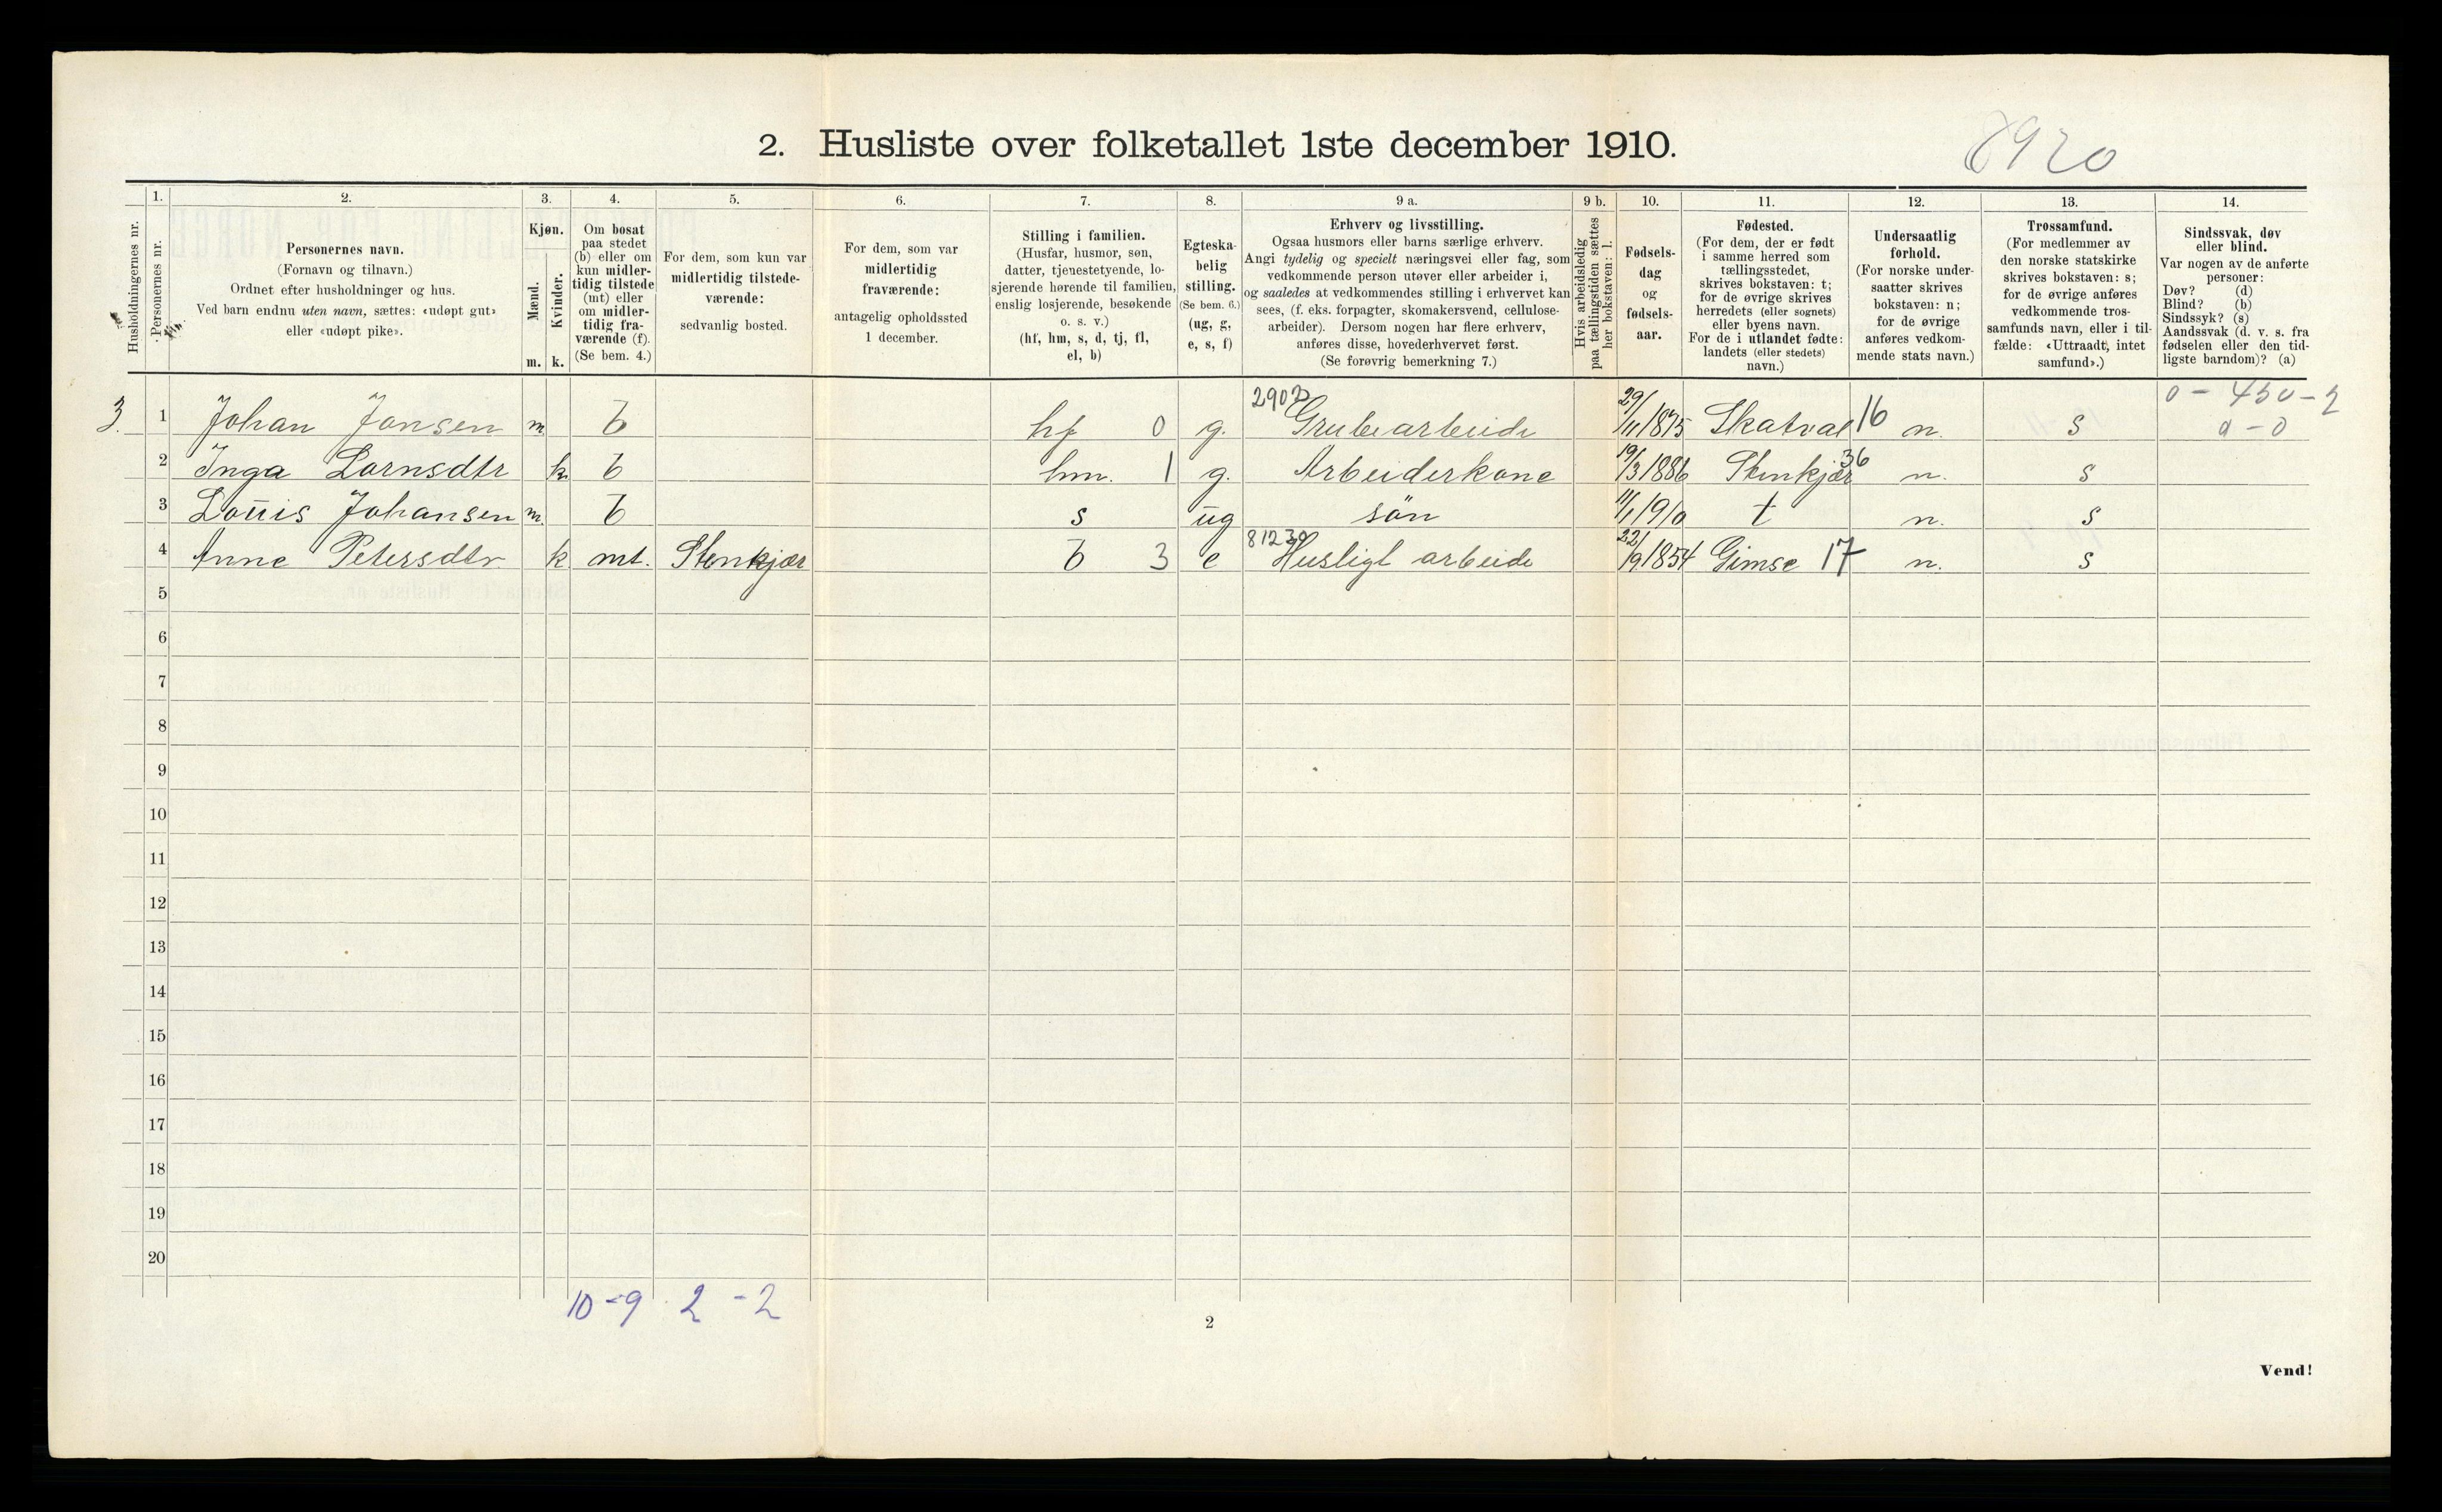 2. Husliste over folketallet 1ste december 1910.
8920
Husholdningernes nr.
1.
Personernes nr.
2.
Personernes navn.
(Fornavn og tilnavn.)
Ordnet efter husholdninger og hus.
Ved barn endnu uten navn, sættes: «udøpt gut»
eller «udøpt pike».
3.
Kjøn.
Mænd.
Kvinder.
m. k.
4.
Om bosat
paa stedet
(b) eller om
kun midler-
tidig tilstede
(mt) eller
om midler-
tidig fra-
værende (f).
(Se bem. 4.)
5.
For dem, som kun var
midlertidig tilstede-
værende:
sedvanlig bosted.
6.
For dem, som var
midlertidig
fraværende:
antagelig opholdssted
1 december.
7.
Stilling i familien.
(Husfar, husmor, søn,
datter, tjenestetyende, lo-
sjerende hørende til familien,
enslig losjerende, besøkende
o. s. v.)
(hf, hm, s, d, tj, fl,
el, b)
8.
Egteska-
belig
stilling.
(Se bem. 6.)
(ug, g,
e, s, f)
9 a.
Erhverv og livsstilling.
Ogsaa husmors eller barns særlige erhverv.
Angi tydelig og specielt næringsvei eller fag, som
vedkommende person utøver eller arbeider i,
og saaledes at vedkommendes stilling i erhvervet kan
sees, (f. eks. forpagter, skomakersvend, cellulose-
arbeider). Dersom nogen har flere erhverv,
anføres disse, hovederhvervet først.
(Se forøvrig bemerkning 7.)
9 b.
Hvis arbeidsledig
paa tællingstiden sættes
her bokstaven: l.
10.
Fødsels-
dag
og
fødsels-
aar.
11.
Fødested.
(For dem, der er født
i samme herred som
tællingsstedet,
skrives bokstaven: t;
for de øvrige skrives
herredets (eller sognets)
eller byens navn.
For de i utlandet fødte:
landets (eller stedets)
navn.)
12.
Undersaatlig
forhold.
(For norske under-
saatter skrives
bokstaven: n;
for de øvrige
anføres vedkom-
mende stats navn.)
13.
Trossamfund.
(For medlemmer av
den norske statskirke
skrives bokstaven: s;
for de øvrige anføres
vedkommende tros-
samfunds navn, eller i til-
fælde: «Uttraadt, intet
samfund».)
14.
Sindssvak, døv
eller blind.
Var nogen av de anførte
personer:
Døv? (d)
Blind? (b)
Sindssyk? (s)
Aandssvak (d. v. s. fra
fødselen eller den tid-
ligste barndom)? (a)
0 - 450 - 2
2902
3. 1 Johan Jonsen m b hf 0 g. Grubearbeide 29/11 1875 Skatval 16 n. s 0 - 0
2 Inga Larnsdtr k. b hm. 1 g. Arbeiderkone 19/3 1886 Stenkjær 36 n. s
3 Louis Johansen m b s ug sön 11/1 1910 t n. s
81230
4 Anne Petersdtr k mt. Stenkjær b 3 e Husligt arbeide 22/9 1854 Gimse 17 n. s
5
6
7
8
9
10
11
12
13
14
15
16
17
18
19
20
10 - 9 2 - 2
2
Vend!